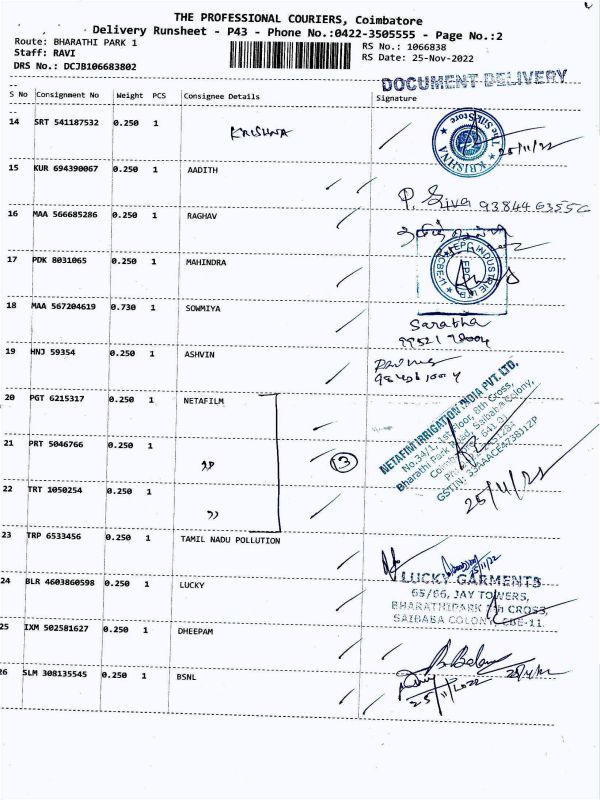 THE PROFESSIONAL COURIERS, Coimbatore
Delivery Runsheet - P43 - Phone No.:0422-3505555 - Page No.:2
Route: BHARATHI PARK 1
RS No.: 1066838
Staff: RAVI
RS Date: 25-Nov-2022
DRS No.: DCJB106683802
DOCUMENT DELIVERY
S No Consignment No Weight PCS Consignee Details Signature
14 SRT 541187532 0.250 1 KRISHNA
KRISHNA The Silk Store
25/11/22
15 KUR 694390067 0.250 1 AADITH
P. Siva
16 MAA 566685286 0.250 1 RAGHAV
17 PDK 8031065 0.250 1 MAHINDRA
18 MAA 567204619 0.730 1 SOWMIYA
Saratha
19 HNJ 59354 0.250 1 ASHVIN
20 PGT 6215317 0.250 1 NETAFILM
NETAFIM IRRIGATION INDIA PVT. LTD.
No.34/1, 1st Floor, 8th Cross,
Bharathi Park Road, Saibaba Colony,
21 PRT 5046766 0.250 1 "
3
22 TRT 1050254 0.250 1 "
25/11/22
23 TRP 6533456 0.250 1 TAMIL NADU POLLUTION
24 BLR 4603860598 0.250 1 LUCKY
LUCKY GARMENTS
65/66, JAY TOWERS,
BHARATHIPARK 7th CROSS,
SAIBABA COLONY, CBE-11.
25 IXM 502581627 0.250 1 DHEEPAM
26 SLM 308135545 0.250 1 BSNL
25/11/2022